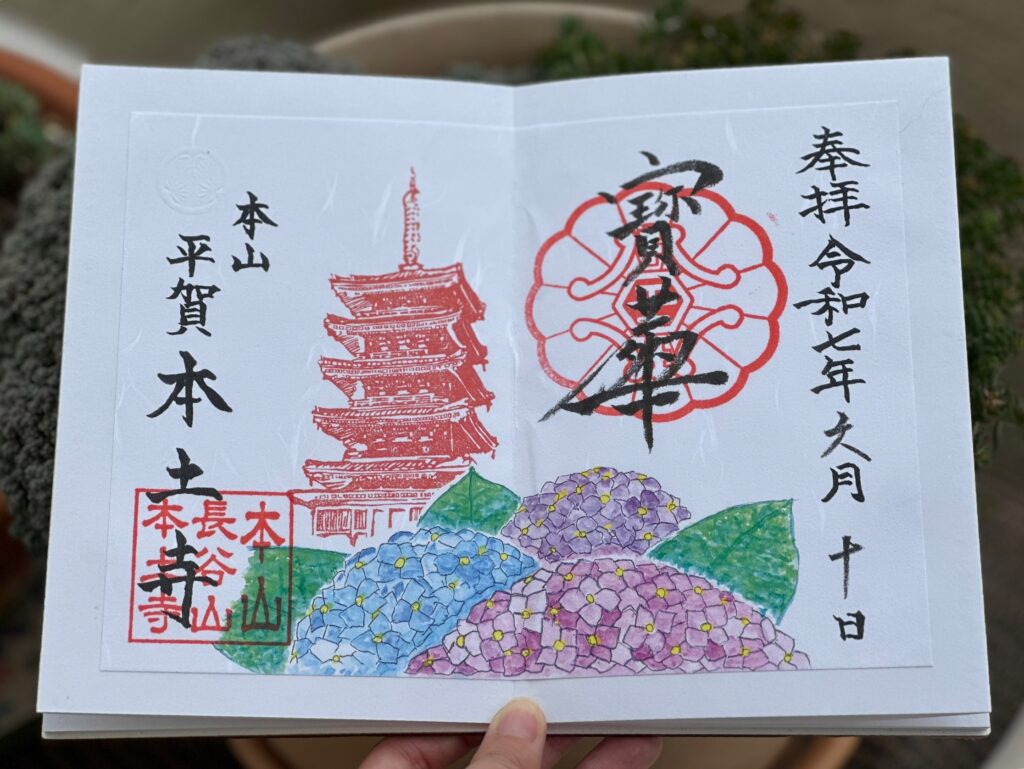 奉拝 令和七年六月十日
寶華
本山
平賀 本土寺
本山
長谷山
本土寺